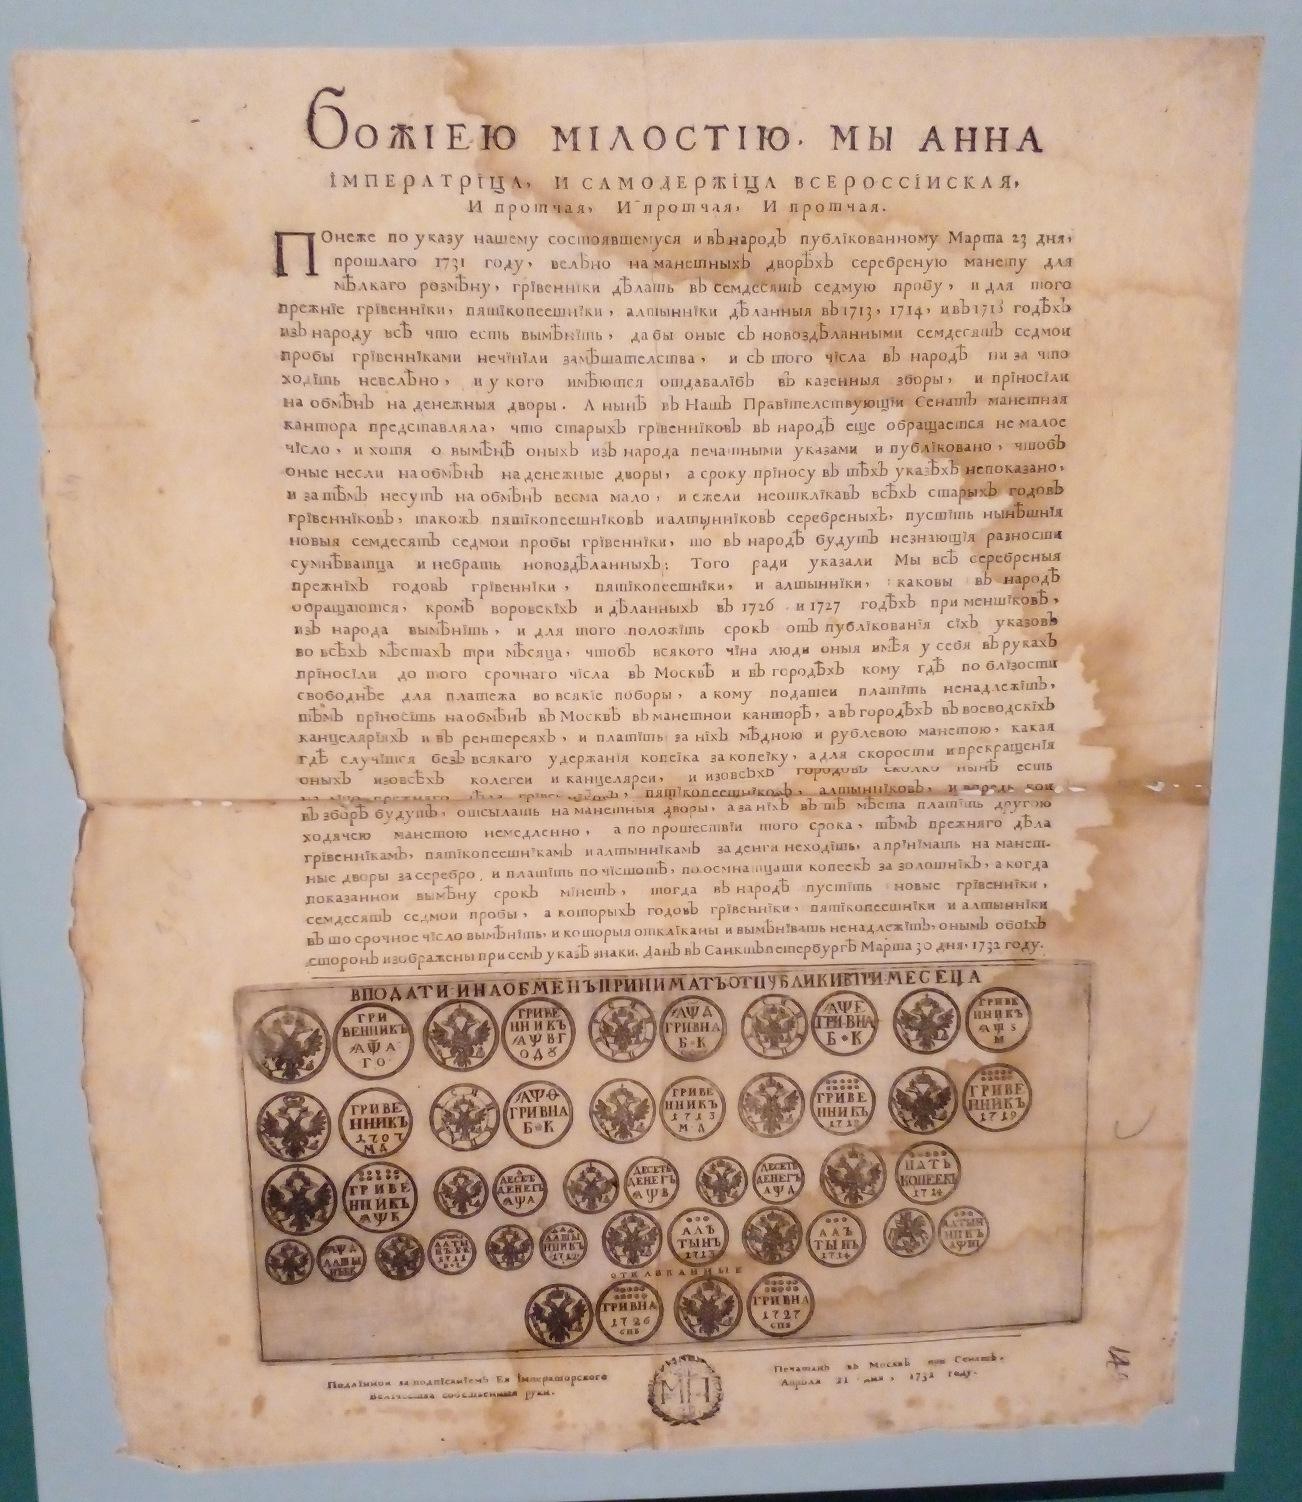 Божіею мілостію, мы анна
імператріца, и самодержіца всероссійская,
и протчая, и протчая, и протчая.
Понеже по указу нашему состоявшемуся и въ народъ публікованному Марта 23 дня,
прошлаго 1731 году, велѣно на манетныхъ дворѣхъ серебреную манету для
мѣлкаго розмѣну, грівенніки дѣлать въ семдесятъ седмую пробу, и для того
прежніе грівенніки, пятікопеешніки, алтынніки дѣланныя въ 1713, 1714, и въ 1718 годѣхъ
изъ народу всѣ что есть вымѣнїть, дабы оные съ новоздѣланными семдесятъ седмои
пробы грівенніками нечініли замѣшателства, и съ того чісла въ народѣ ни за что
ходїть невелѣно, и у кого имѣются отдавалібъ въ казенныя зборы, и пріносіли
на обмѣнъ на денежныя дворы. А нынѣ въ Нашъ Правітелствующіи Сенатъ манетная
кантора представляла, что старыхъ грівенніковъ въ народѣ еще обращается не малое
чісло, и хотя о вымѣнѣ оныхъ изъ народа печатными указами и публіковано, чтобъ
оные несли на обмѣнъ на денежные дворы, а сроку пріносу въ тѣхъ указѣхъ непоказано,
и затѣмъ несутъ на обмѣнъ весма мало, и ежели неотклікавъ всѣхъ старыхъ годовъ
грівенніковъ, такожъ пятікопеешніковъ и алтынніковъ серебреныхъ, пустїть нынѣшнія
новыя семдесятъ седмои пробы грівенніки, то въ народѣ будутъ незнающія разности
сумнѣватца и небрать новоздѣланныхъ; Того ради указали Мы всѣ серебреныя
прежніхъ годовъ грівенніки, пятікопеешніки, и алтынніки, каковы въ народѣ
обращаются, кромѣ воровскіхъ и дѣланныхъ въ 1726 и 1727 годѣхъ при меншіковѣ,
изъ народа вымѣнїть, и для того положїть срокъ отъ публікованія сіхъ указовъ
во всѣхъ мѣстахъ три мѣсяца, чтобъ всякого чіна люди оныя имѣя у себя въ рукахъ
пріносіли до того срочнаго чісла въ Москвѣ и въ городѣхъ кому гдѣ по блізости
свободнѣе для платежа во всякіе поборы, а кому податеи платїть ненадлежїтъ,
тѣмъ пріносїть на обмѣнъ въ Москвѣ въ манетнои канторѣ, а въ городѣхъ въ воеводскіхъ
канцеляріяхъ и въ рентереяхъ, и платїть за ніхъ мѣдною и рублевою манетою, какая
гдѣ случїтся безъ всякаго удержанія копеіка за копеіку, а для скорости и прекращенія
оныхъ изовсѣхъ колегеи и канцелярей, и изовсѣхъ городовъ сколко нынѣ есть
пятікопеешніковъ, алтынніковъ, и впредь кои
въ зборѣ будутъ, отсылать на манетныя дворы, а за ніхъ въ тѣ мѣста платїть другою
ходячею манетою немедленно, а по прошествіи того срока, тѣмъ прежняго дѣла
грівеннікамъ, пятікопеешнікамъ и алтыннікамъ за денги неходїть, а прінімать на манет-
ные дворы за серебро, и платїть по чїстотѣ, по осмнатцати копеекъ за золотнікъ, а когда
показаннои вымѣну срокъ мінетъ, тогда въ народѣ пустїть новые грівенніки,
семдесятъ седмои пробы, а которыхъ годовъ грівенніки, пятікопеешніки и алтынніки
въ то срочное чісло вымѣнїть, и которыя откліканы и вымѣнївать ненадлежїтъ, онымъ обоїхъ
сторонъ изображены при семъ указѣ знаки. Данъ въ Санктъпетербургѣ Марта 30 дня, 1732 году.
ВПОДАТИ И НАОБМЕНЪ ПРИНИМАТЬ ОТПУБЛИКИ ВТРИ МЕСЕЦА
ГРИ ВЕННИКЪ ҂АѰА ГО ГРИВЕ ННИКЪ ҂АѰВГ ОДꙊ ҂АѰД ГРИВНА Б К ҂АѰЕ ГРИВНА Б К ГРИВЕ ННИКЪ ҂АѰЅ М
ГРИВЕ ННИКЪ 1707 МД ҂АѰѲ ГРИВНА Б К ГРИВЕ ННИКЪ 1713 МД ГРИВЕ ННИКЪ 1718 ГРИВЕ ННИКЪ 1719
ГРИВЕ ННИКЪ ҂АѰК ДЕСЕТЬ ДЕНЕГЪ ҂АѰА ДЕСЕТЬ ДЕНЕГЪ ҂АѰВ ДЕСЕТЬ ДЕНЕГЪ ҂АѰД ПАТЬ КОПЕЕКЪ 1714
АЛ ТЫНЪ 1713 АЛ ТЫНЪ 1714 АЛТЫН НИКЪ ҂АѰИІ
ОТКЛИКАННЫЕ
ГРИВНА 1726 СПБ ГРИВНА 1727 СПБ
Подлїннои за подпісаніемъ Ея Імператорского
Велічества собственныя руки.
Печатанъ въ Москвѣ при Сенатѣ,
Апрѣля 21 дня, 1732 году.